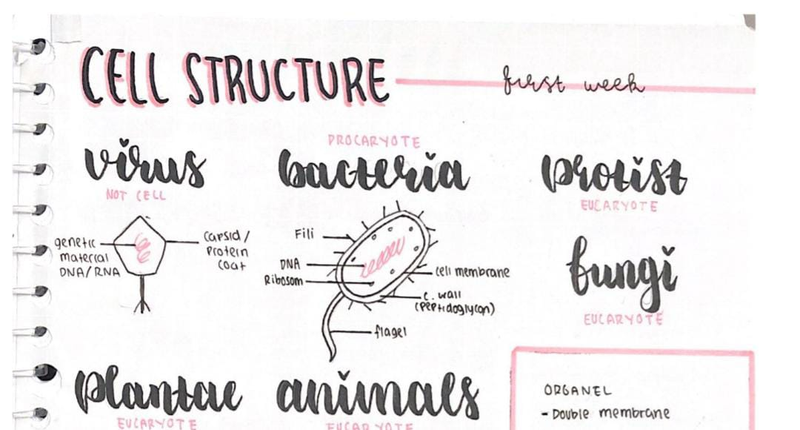 CELL STRUCTURE
first week
virus
NOT CELL
genetic
material
DNA/RNA
Capsid/
Protein
Coat
PROCARYOTE
bacteria
Fili
DNA
Ribosom
cell membrane
c. wall
(peptidoglycan)
flagel
protist
EUCARYOTE
fungi
EUCARYOTE
plantae
EUCARYOTE
animals
EUCARYOTE
ORGANEL
- Double membrane